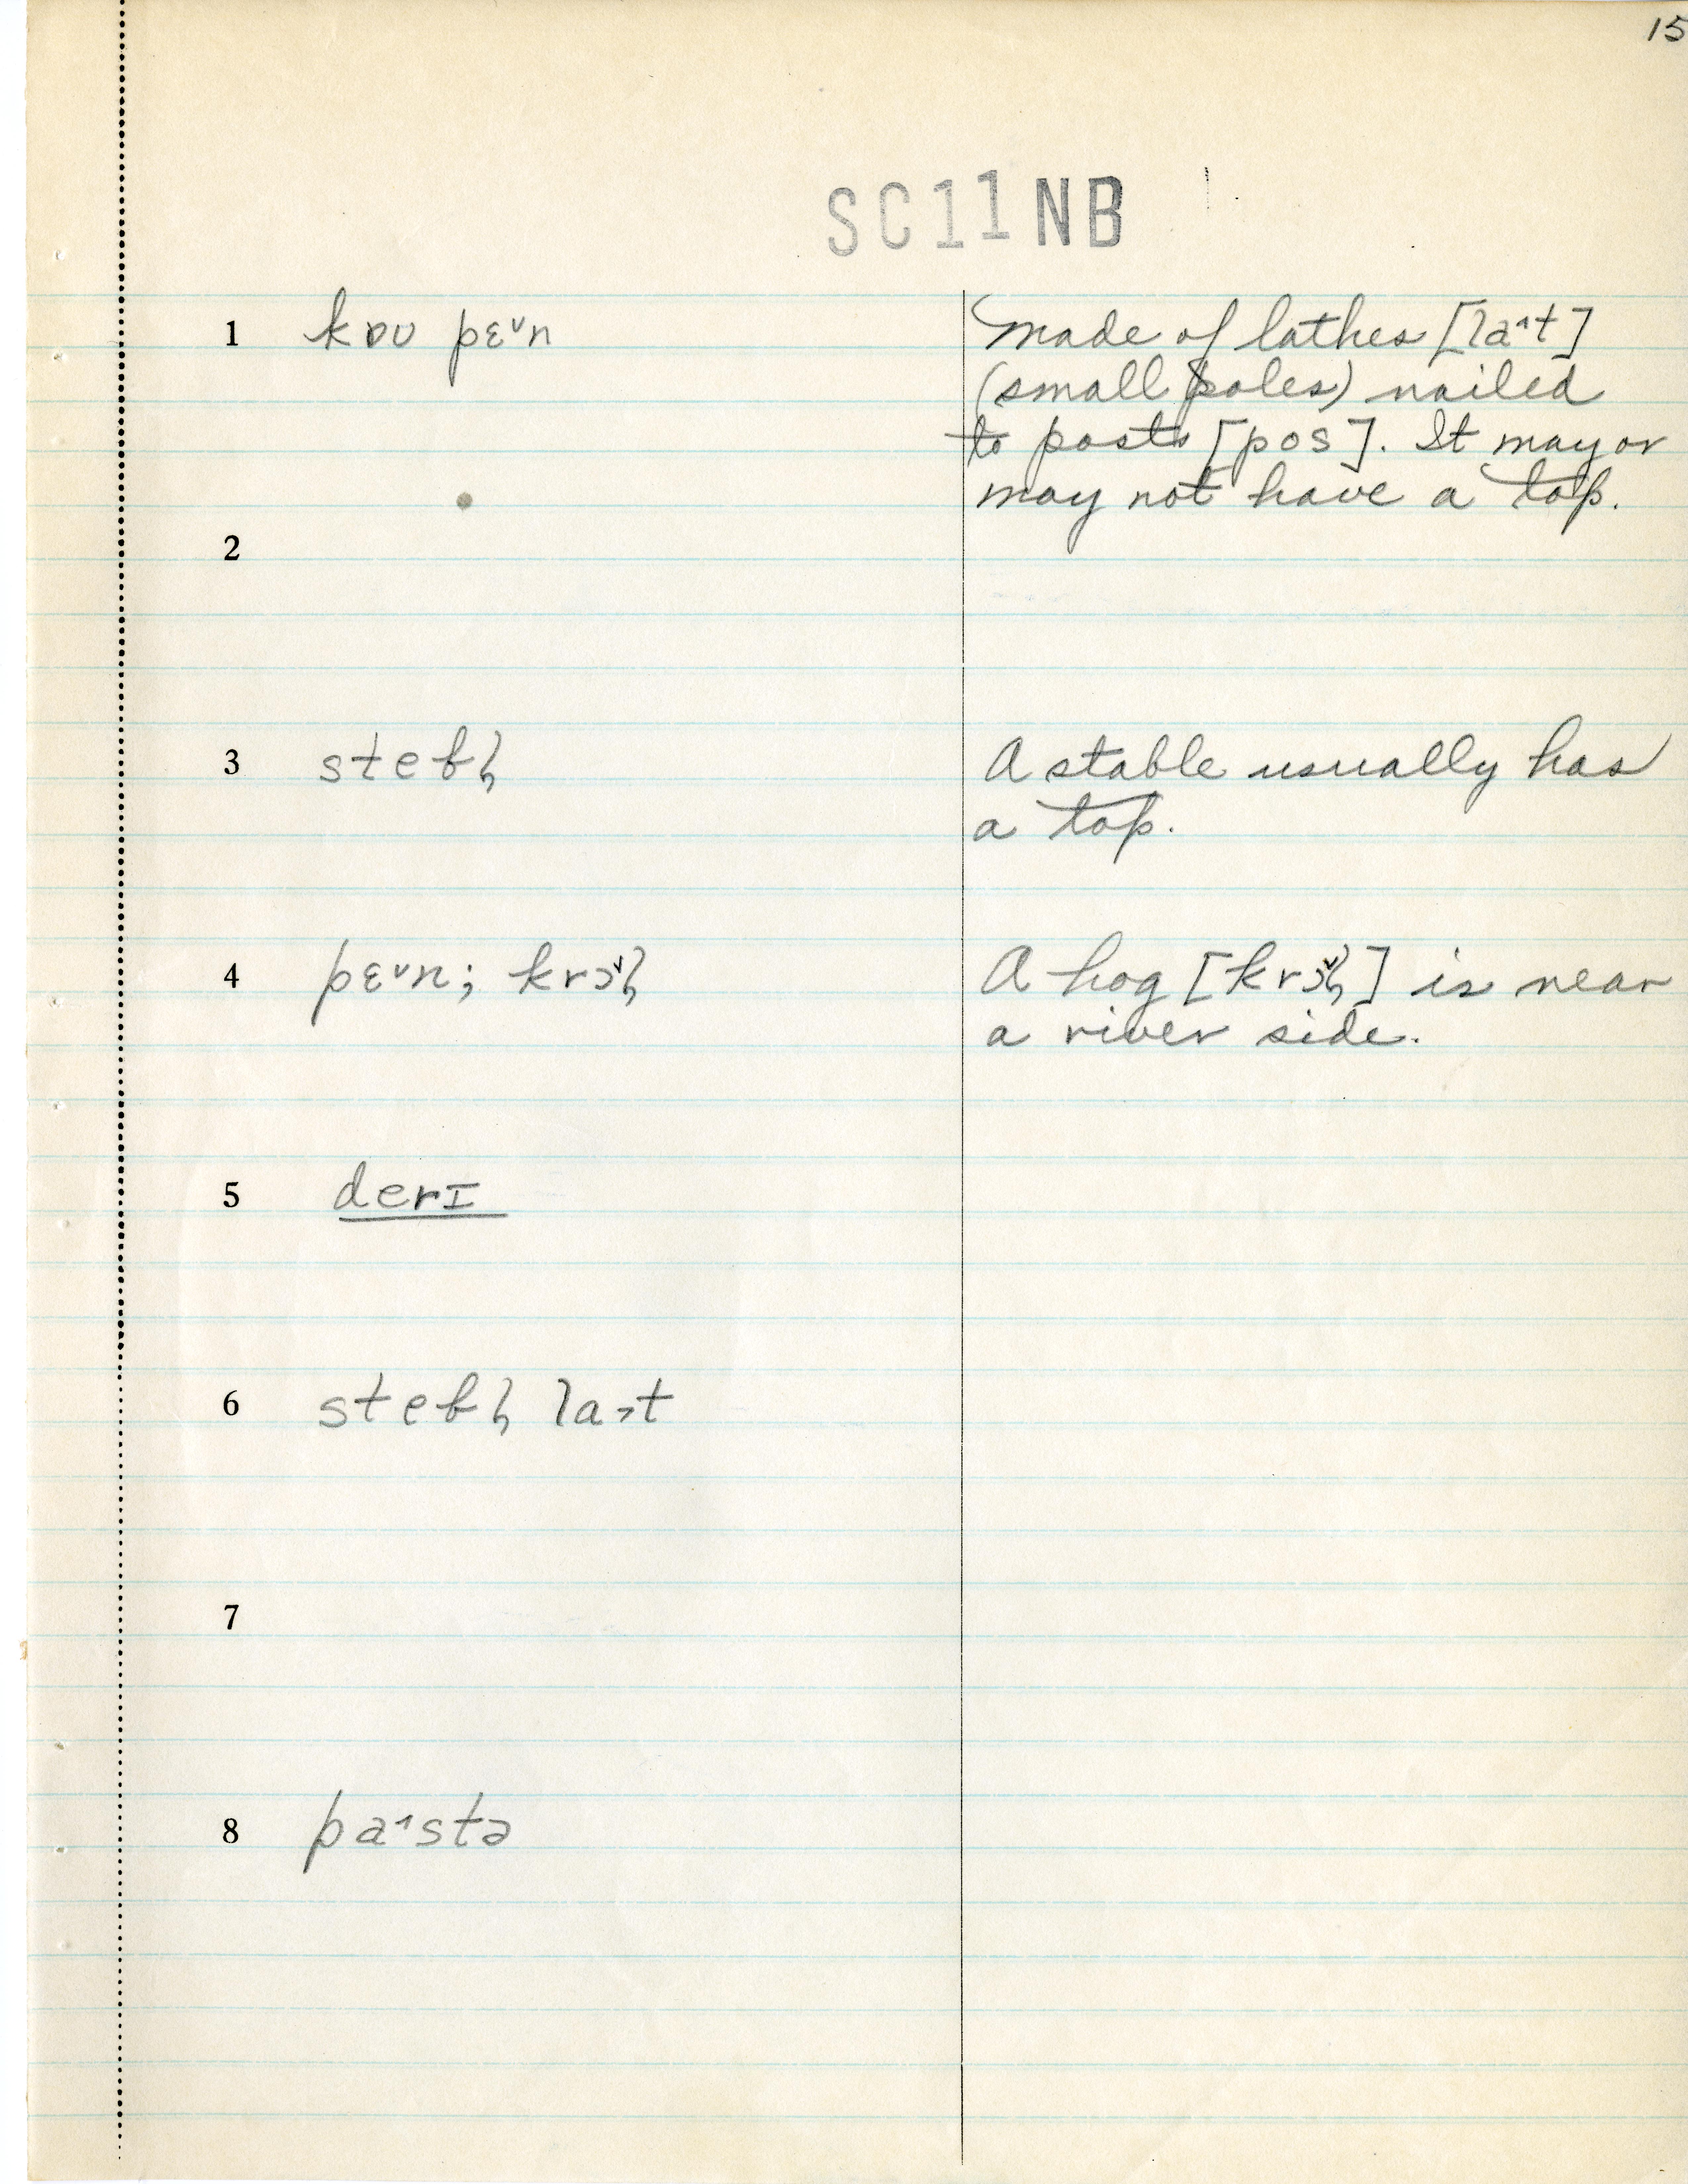 15
SC11NB
1 kɒʊ pɛ˅n
made of lathes [la˄t]
(small poles) nailed
to posts [pos]. It may or
may not have a top.
2
3 stebl̩
A stable usually has
a top.
4 pɛ˅n; krɔ˅l̩
A hog [krɔ˅l̩] is near
a river side.
5 derɪ
6 stebl̩ la˃t
7
8 pa˄stə